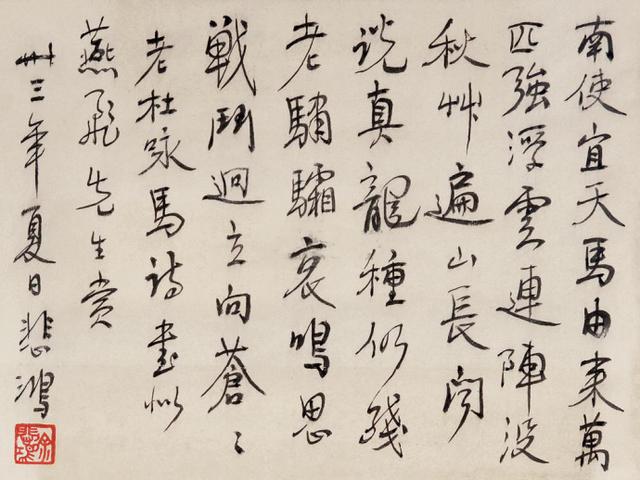 南使宜天馬由来萬
匹強浮雲連陣没
秋艸遍山長聞
説真龍種仍殘
老驌驦哀鳴思
戰鬥迴立向蒼〻
老杜咏馬詩書似
燕飛先生賞
卅三年夏日悲鴻